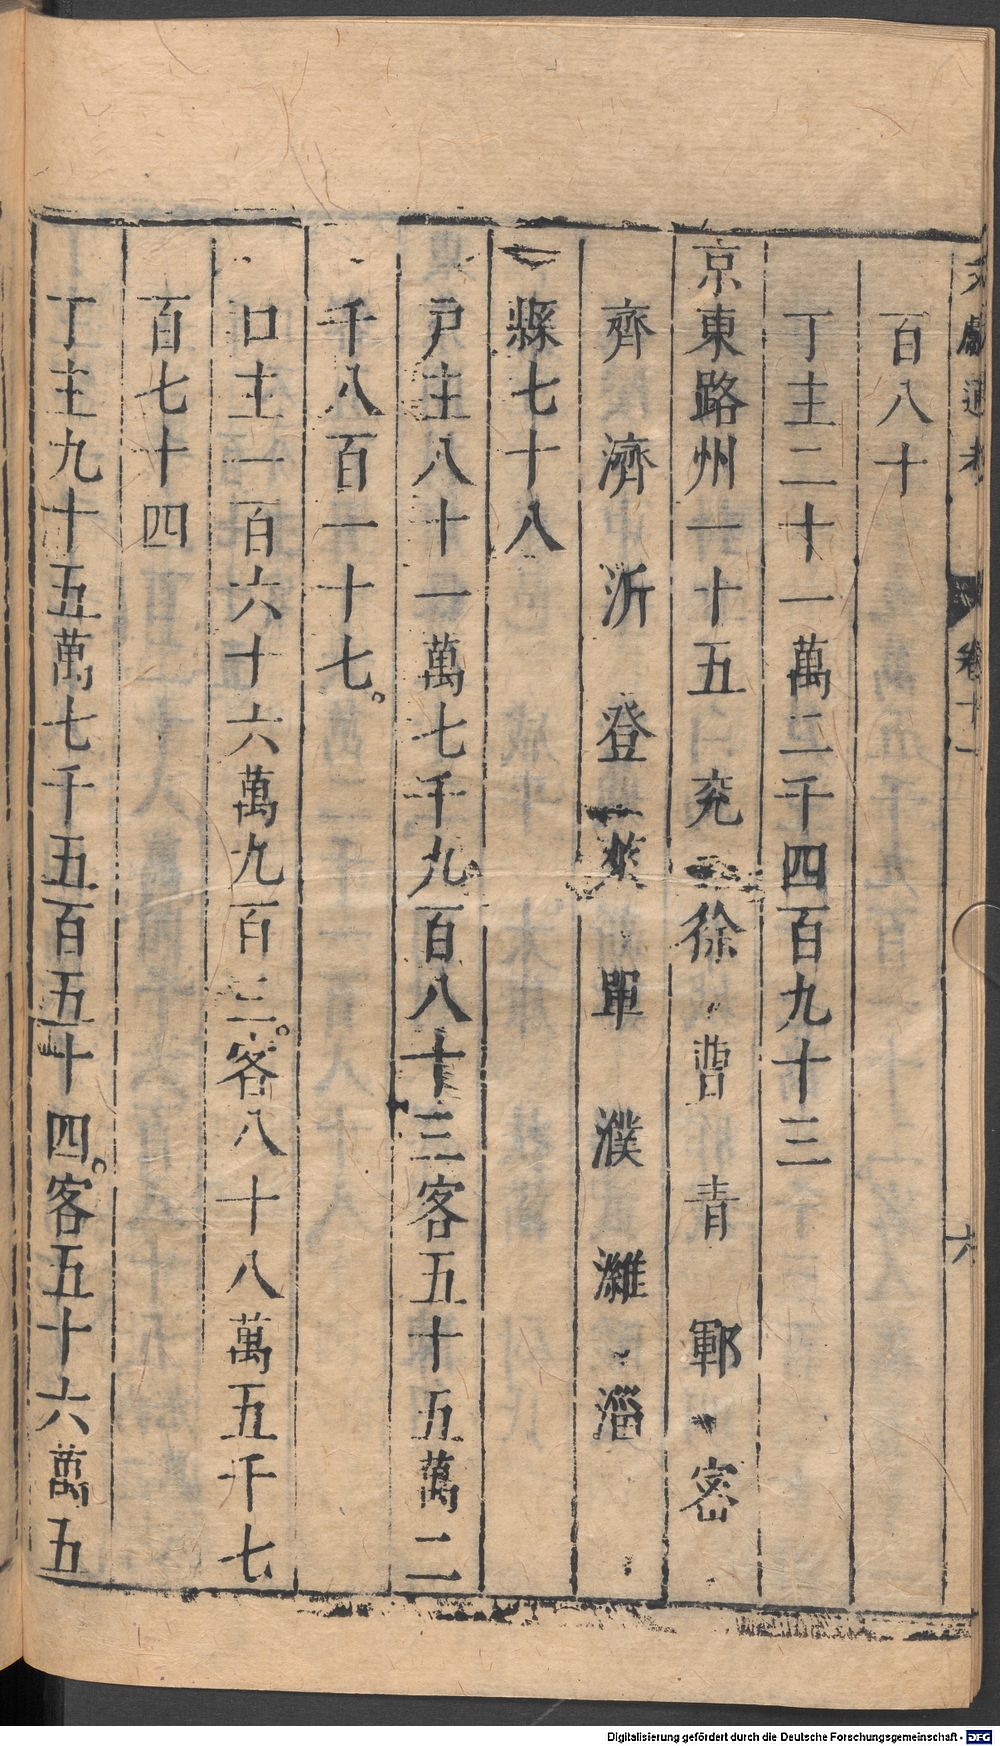 文獻通考 卷十一 六
百八十
丁主二十一萬二千四百九十三
京東路州一十五 兖 徐 曹 青 鄆 密
齊 濟 沂 登 萊 單 濮 濰 淄
縣七十八
戸主八十一萬七千九百八十三客五十五萬二
千八百一十七
口主一百六十六萬九百三客八十八萬五千七
百七十四
丁主九十五萬七千五百五十四客五十六萬五
Digitalisierung gefördert durch die Deutsche Forschungsgemeinschaft - DFG